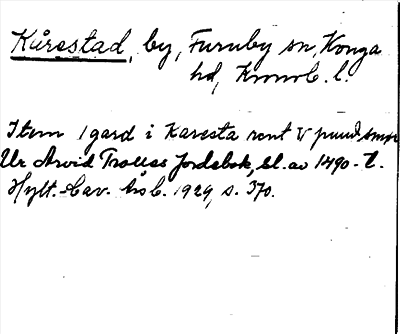 Kårestad, by, Furuby sn, Konga
hd, Kronob. l.
Item 1 gard i Karesta rent V pund smør
Ur Arvid Trolles Jordebok, sl. av 1490-t.
Hylt.-Cav. bib. 1929, s. 370.